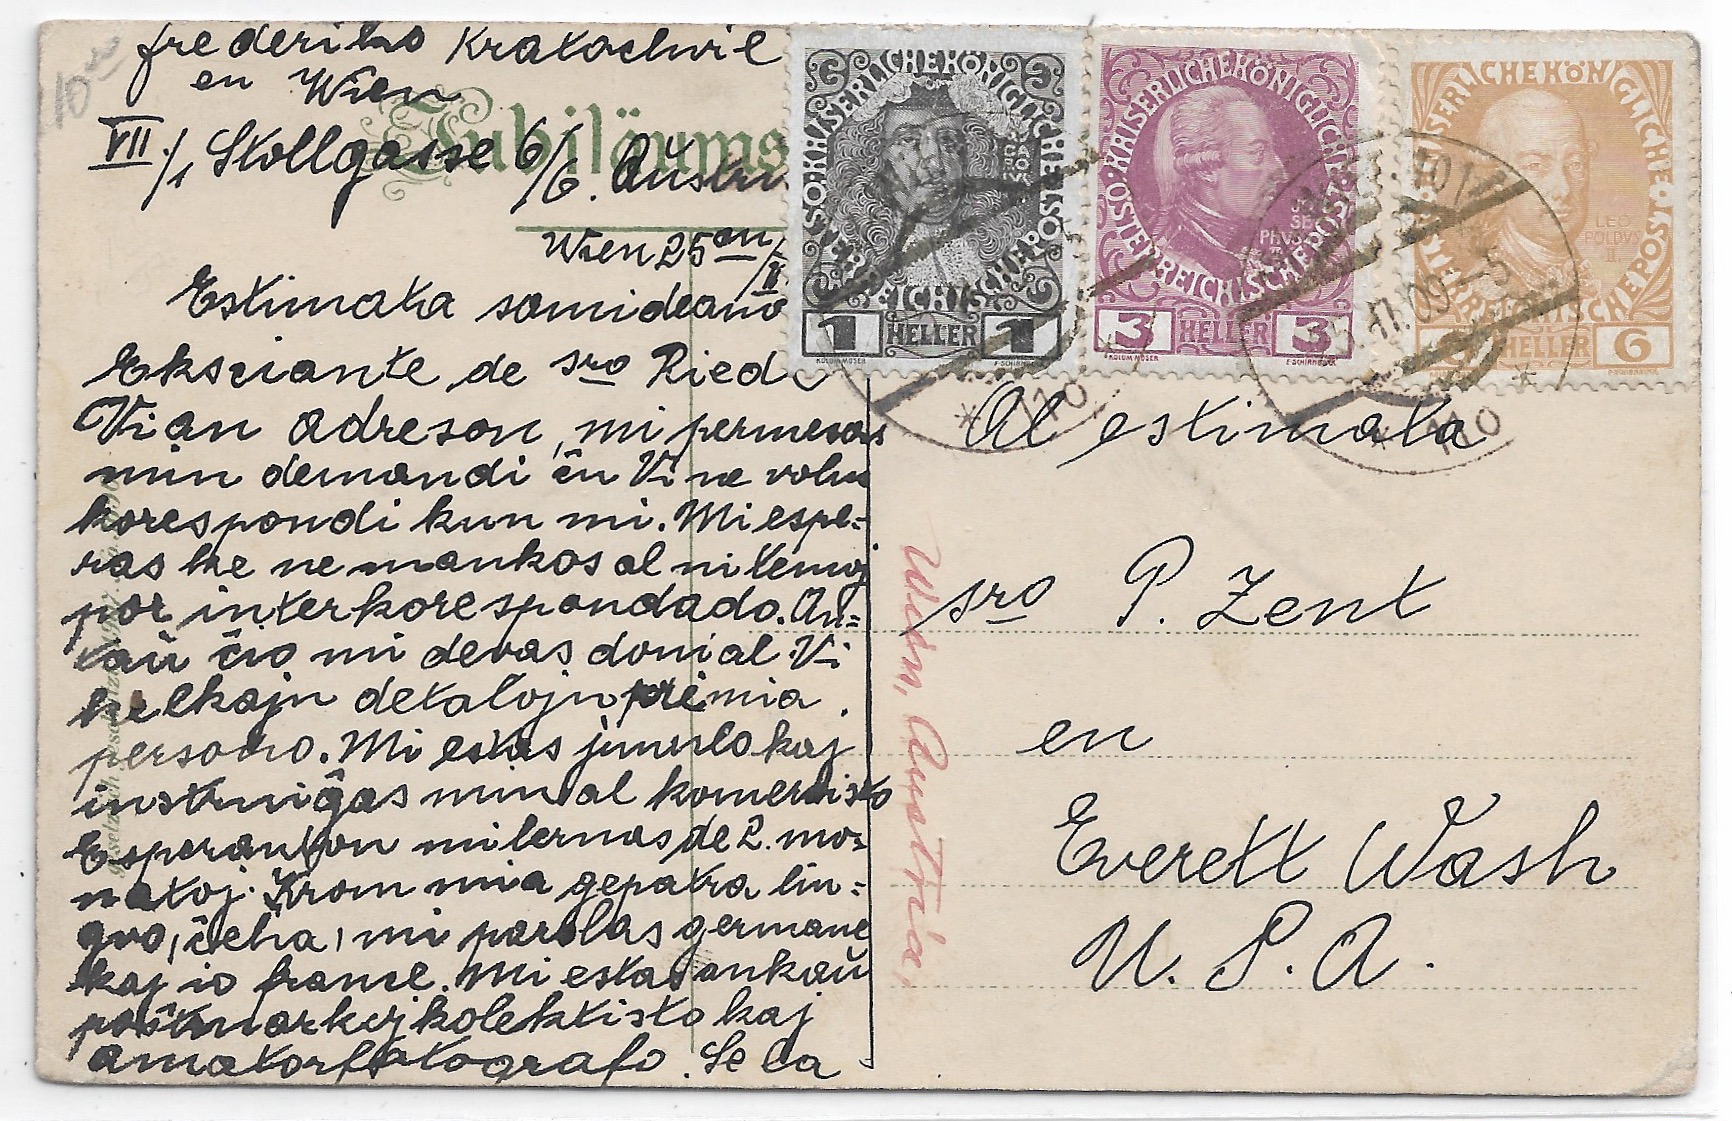 frederiko Kratochvil
en Wien
VII./1 Stollgasse 6/6. Austri
Jubiläums
Wien 25an/II
Estimata samideano
Eksciante de sro Riedl
Vian adreson, mi permesas
min demandi ĉu Vi ne volus
korespondi kun mi. Mi espe=
ras ke ne mankos al ni temoj
por interkorespondado. An=
taŭ ĉio mi devas doni al Vi
kelkajn detalojn pri mia
persono. Mi estas junulo kaj
instruiĝas min al komercisto
Esperanton mi lernas de 2. mo=
natoj. Krom mia gepatra lin=
gvo, ĉeĥa, mi parolas germane
kaj io france. Mi estas ankaŭ
poŝtmarkejkolektisto kaj
amatorfotografo. Se la
KAISERLICHE KÖNIGLICHE ÖSTERREICHISCHE POST
1 HELLER 1
KOLOM. MOSER
F. SCHIRNBÖCK
KAISERLICHE KÖNIGLICHE POST ÖSTERREICHISCHE
JOSEPHVS II
3 HELLER 3
KOLOM. MOSER
F. SCHIRNBÖCK
KAISERLICHE KÖNIGLICHE POST ÖSTERREICHISCHE
LEOPOLDVS II
6 HELLER 6
F. SCHIRNBÖCK
II.09
* 110
* 110
Al estimata
sro P. Zent
en
Everett Wash
U. S. A.
Wien, Austria,